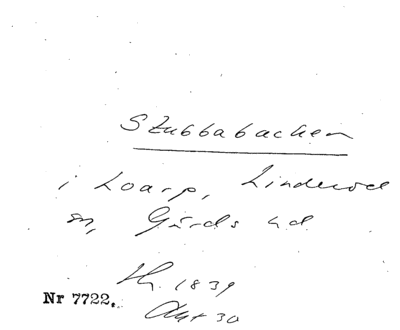 Stubbabacken
i Loarp, Linderöd
sn, Gärds hd
th. 1839
Nr 7722.
Akt 30